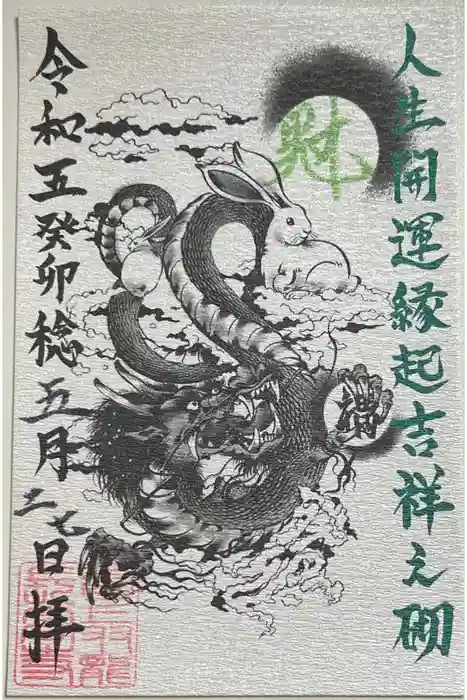 人生開運縁起吉祥之硼
財
令和五癸卯稔五月二七日拝